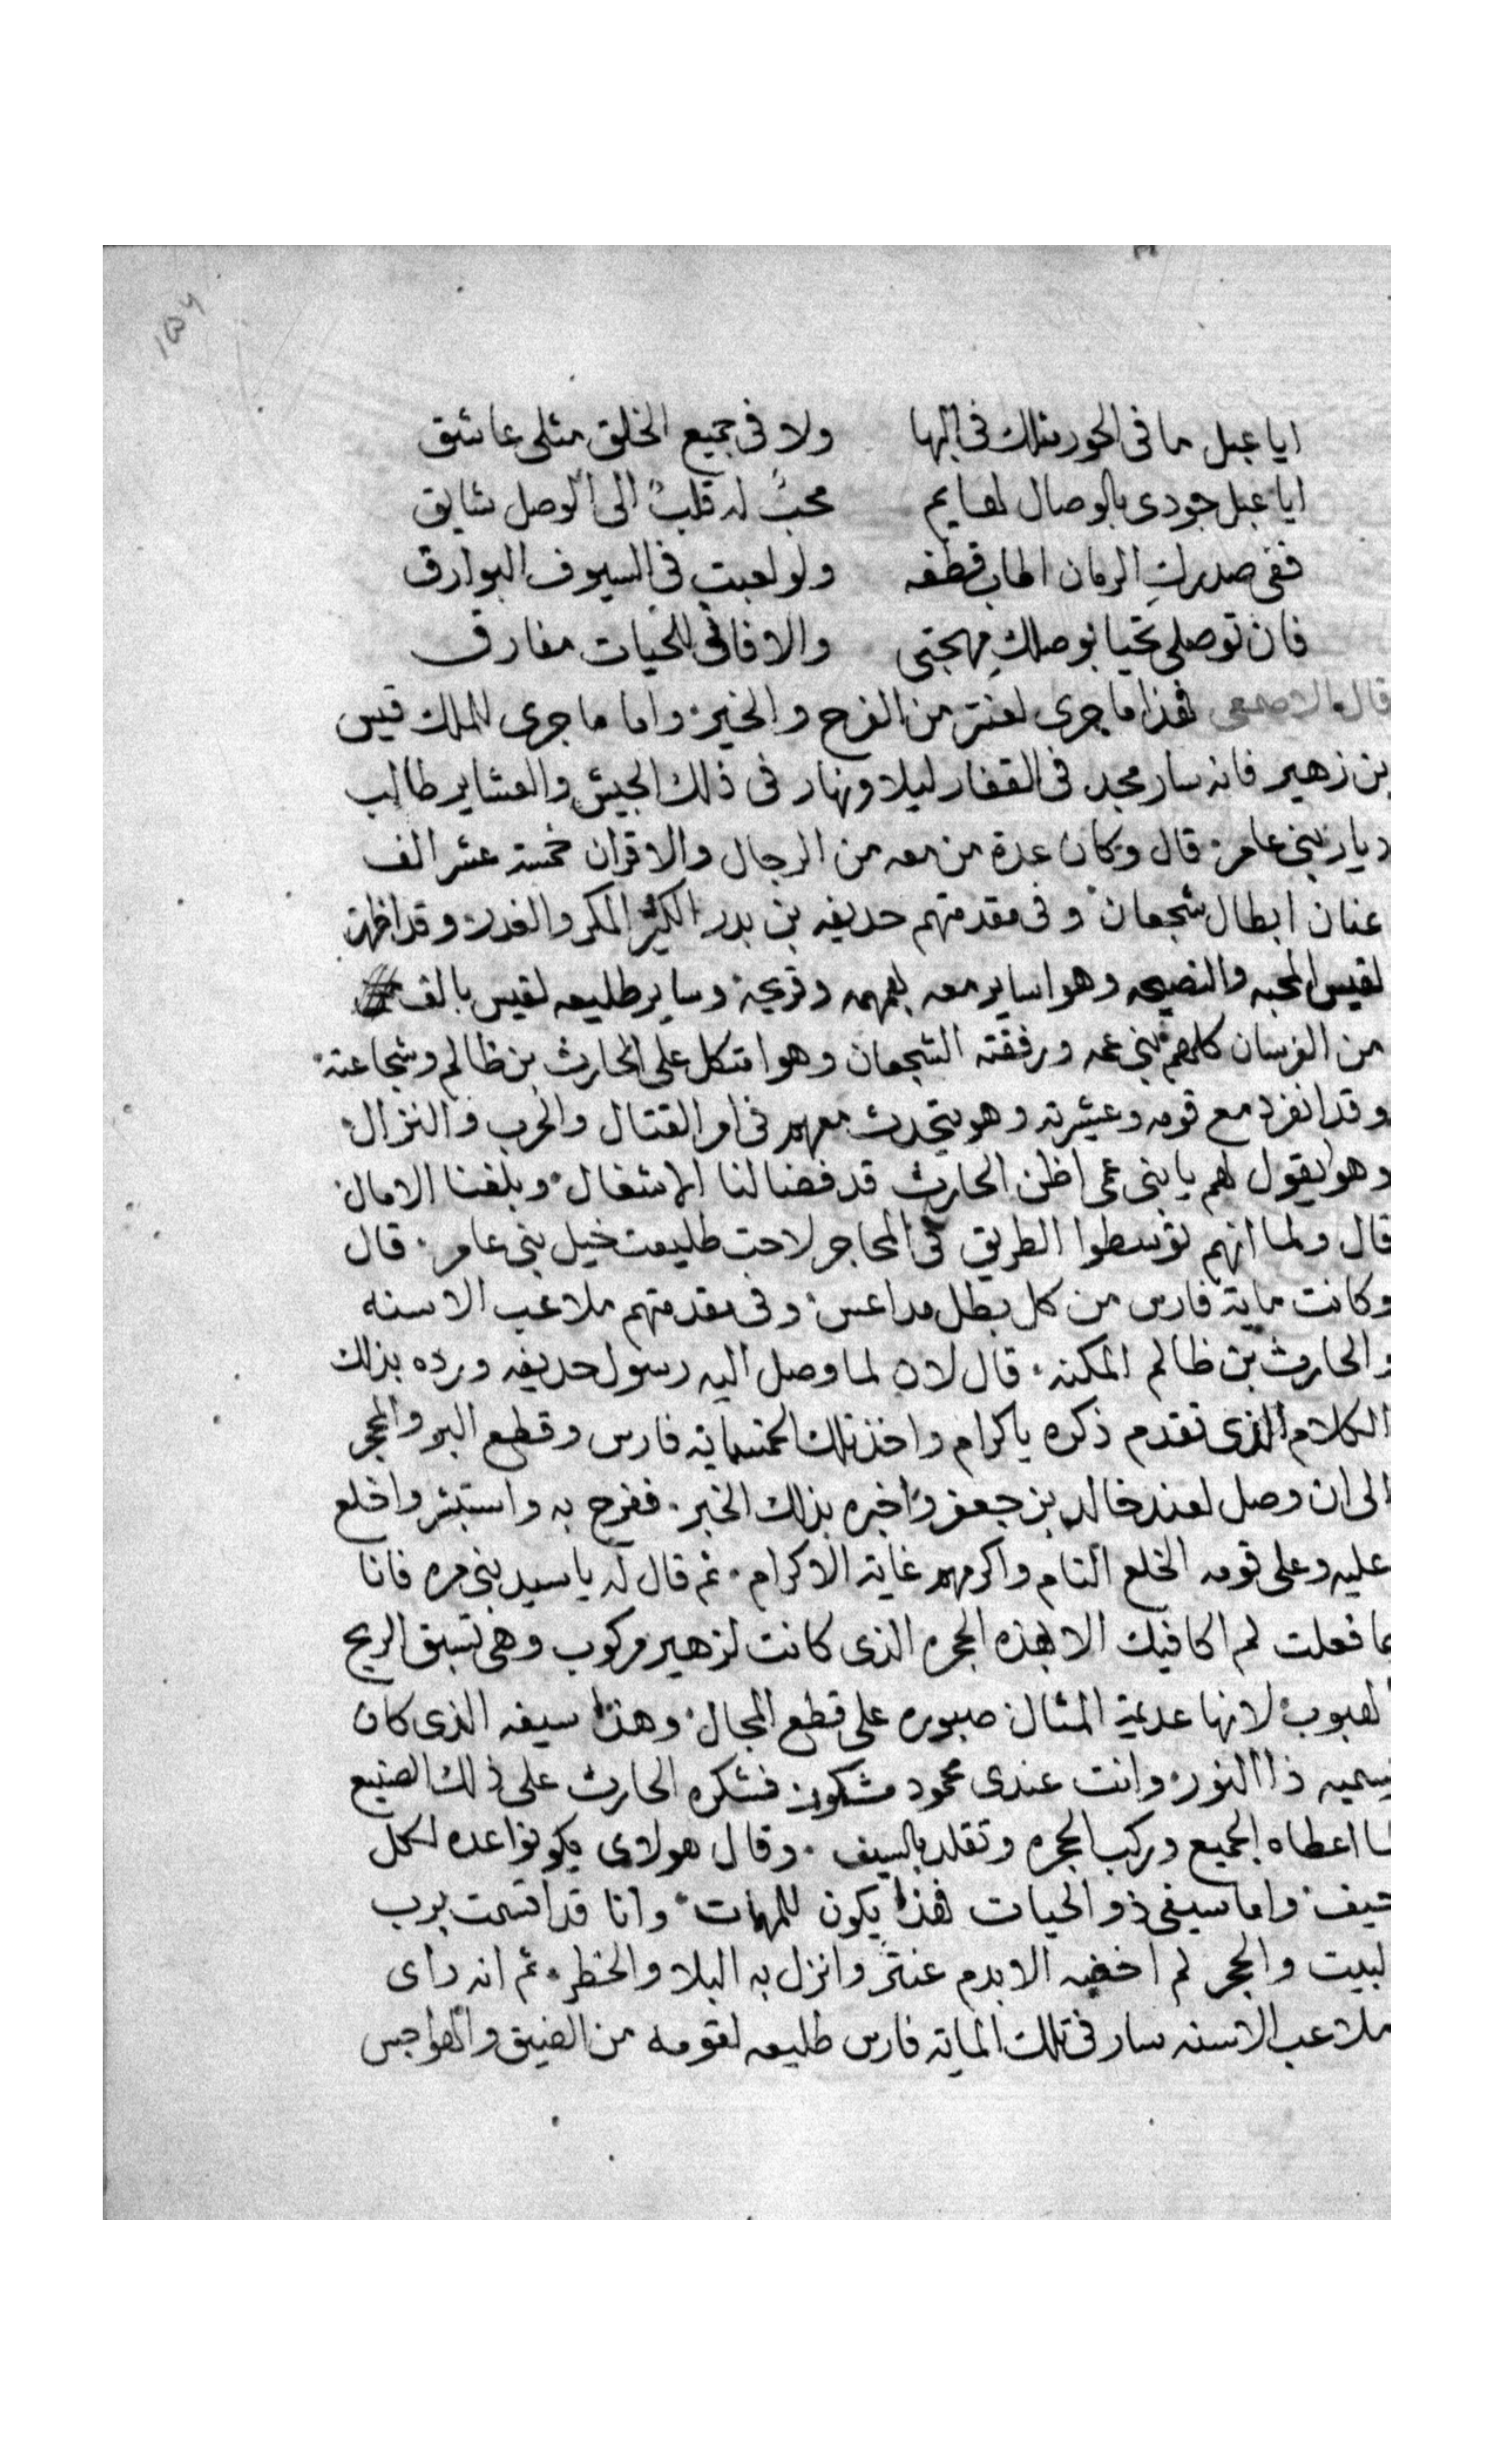 ايا عبل ما فى الحور مثلك فى البها ولا فى جميع الخلق مثلى عاشق
ايا عبل جودى بالوصال لهايم محبٌ له قلبٌ الى الوصل شايق
ففى صدركِ الرمان اطلب قطفه ولو لعبت فى السيوف البوارق
فان توصلى تحيا بوصلكِ مهجتى والا فانى للحيات مفارق
قال الاصمعى فهذا ما جرى لعنتر من الفرح والخير واما ما جرى للملك قيس
بن زهير فانه سار مجد فى القفار ليلا ونهار فى ذلك الجيش والعشاير طالب
ديار بنى عامر قال وكان عدة من معه من الرجال والاقران خمسة عشر الف
عنان ابطال شجعان وفى مقدمتهم حديفه بن بدر الكثير المكر والغدر وقد اظهر
لقيس المحبه والنصيحه وهوا ساير معه بهمه وقريحة وساير طليعه لقيس بالف
من الفرسان كلهم بنى عمه ورفقته الشجعان وهوا متكل على الحارث بن ظالم وشجاعته
وقد انفرد مع قومه وعشيرته وهو يتحدث معهم فى امر القتال والحرب والنزال
وهو يقول لهم يا بنى عمى اظن الحارث قد قضا لنا الاشغال وبلغنا الامال
قال ولما انهم توسطوا الطريق فى المحاجر لاحت طليعت خيل بنى عامر قال
وكانت ماية فارس من كل بطل مداعس وفى مقدمتهم ملاعب الاسنه
والحارث بن ظالم المكنه قال لان لما وصل اليه رسول حديفه ورده بذلك
الكلام الذى تقدم ذكره ياكرام واخذ تلك الخمسماية فارس وقطع البر والحجر
الى ان وصل لعند خالد بن جعفر واخبره بذلك الخبر ففرح به واستبشر واخلع
عليه وعلى قومه الخلع التام واكرمهم غاية الاكرام ثم قال له يا سيد بنى مره فانا
بما فعلت لم اكافيك الا بهذه الحجره الذى كانت لزهير مركوب وهى تسبق الريح
الهبوب لانها عديمة المثال صبوره على قطع المجال وهذا سيفه الذى كان
يسميه ذا النور وانت عندى محمود مشكور فشكره الحارث على ذلك الصنيع
لما اعطاه الجميع وركب الحجره وتقلد بالسيف وقال هولاى يكونوا عده لكل
حيف واما سيفى ذو الحيات فهذا يكون للمهمات وانا قد اقسمت برب
البيت والحجر لم اخضبه الا بدم عنتر وانزل به البلا والخطر ثم انه راى
ملاعب الاسنه سار فى تلك الماية فارس طليعه لقومه من الضيق والهواجس